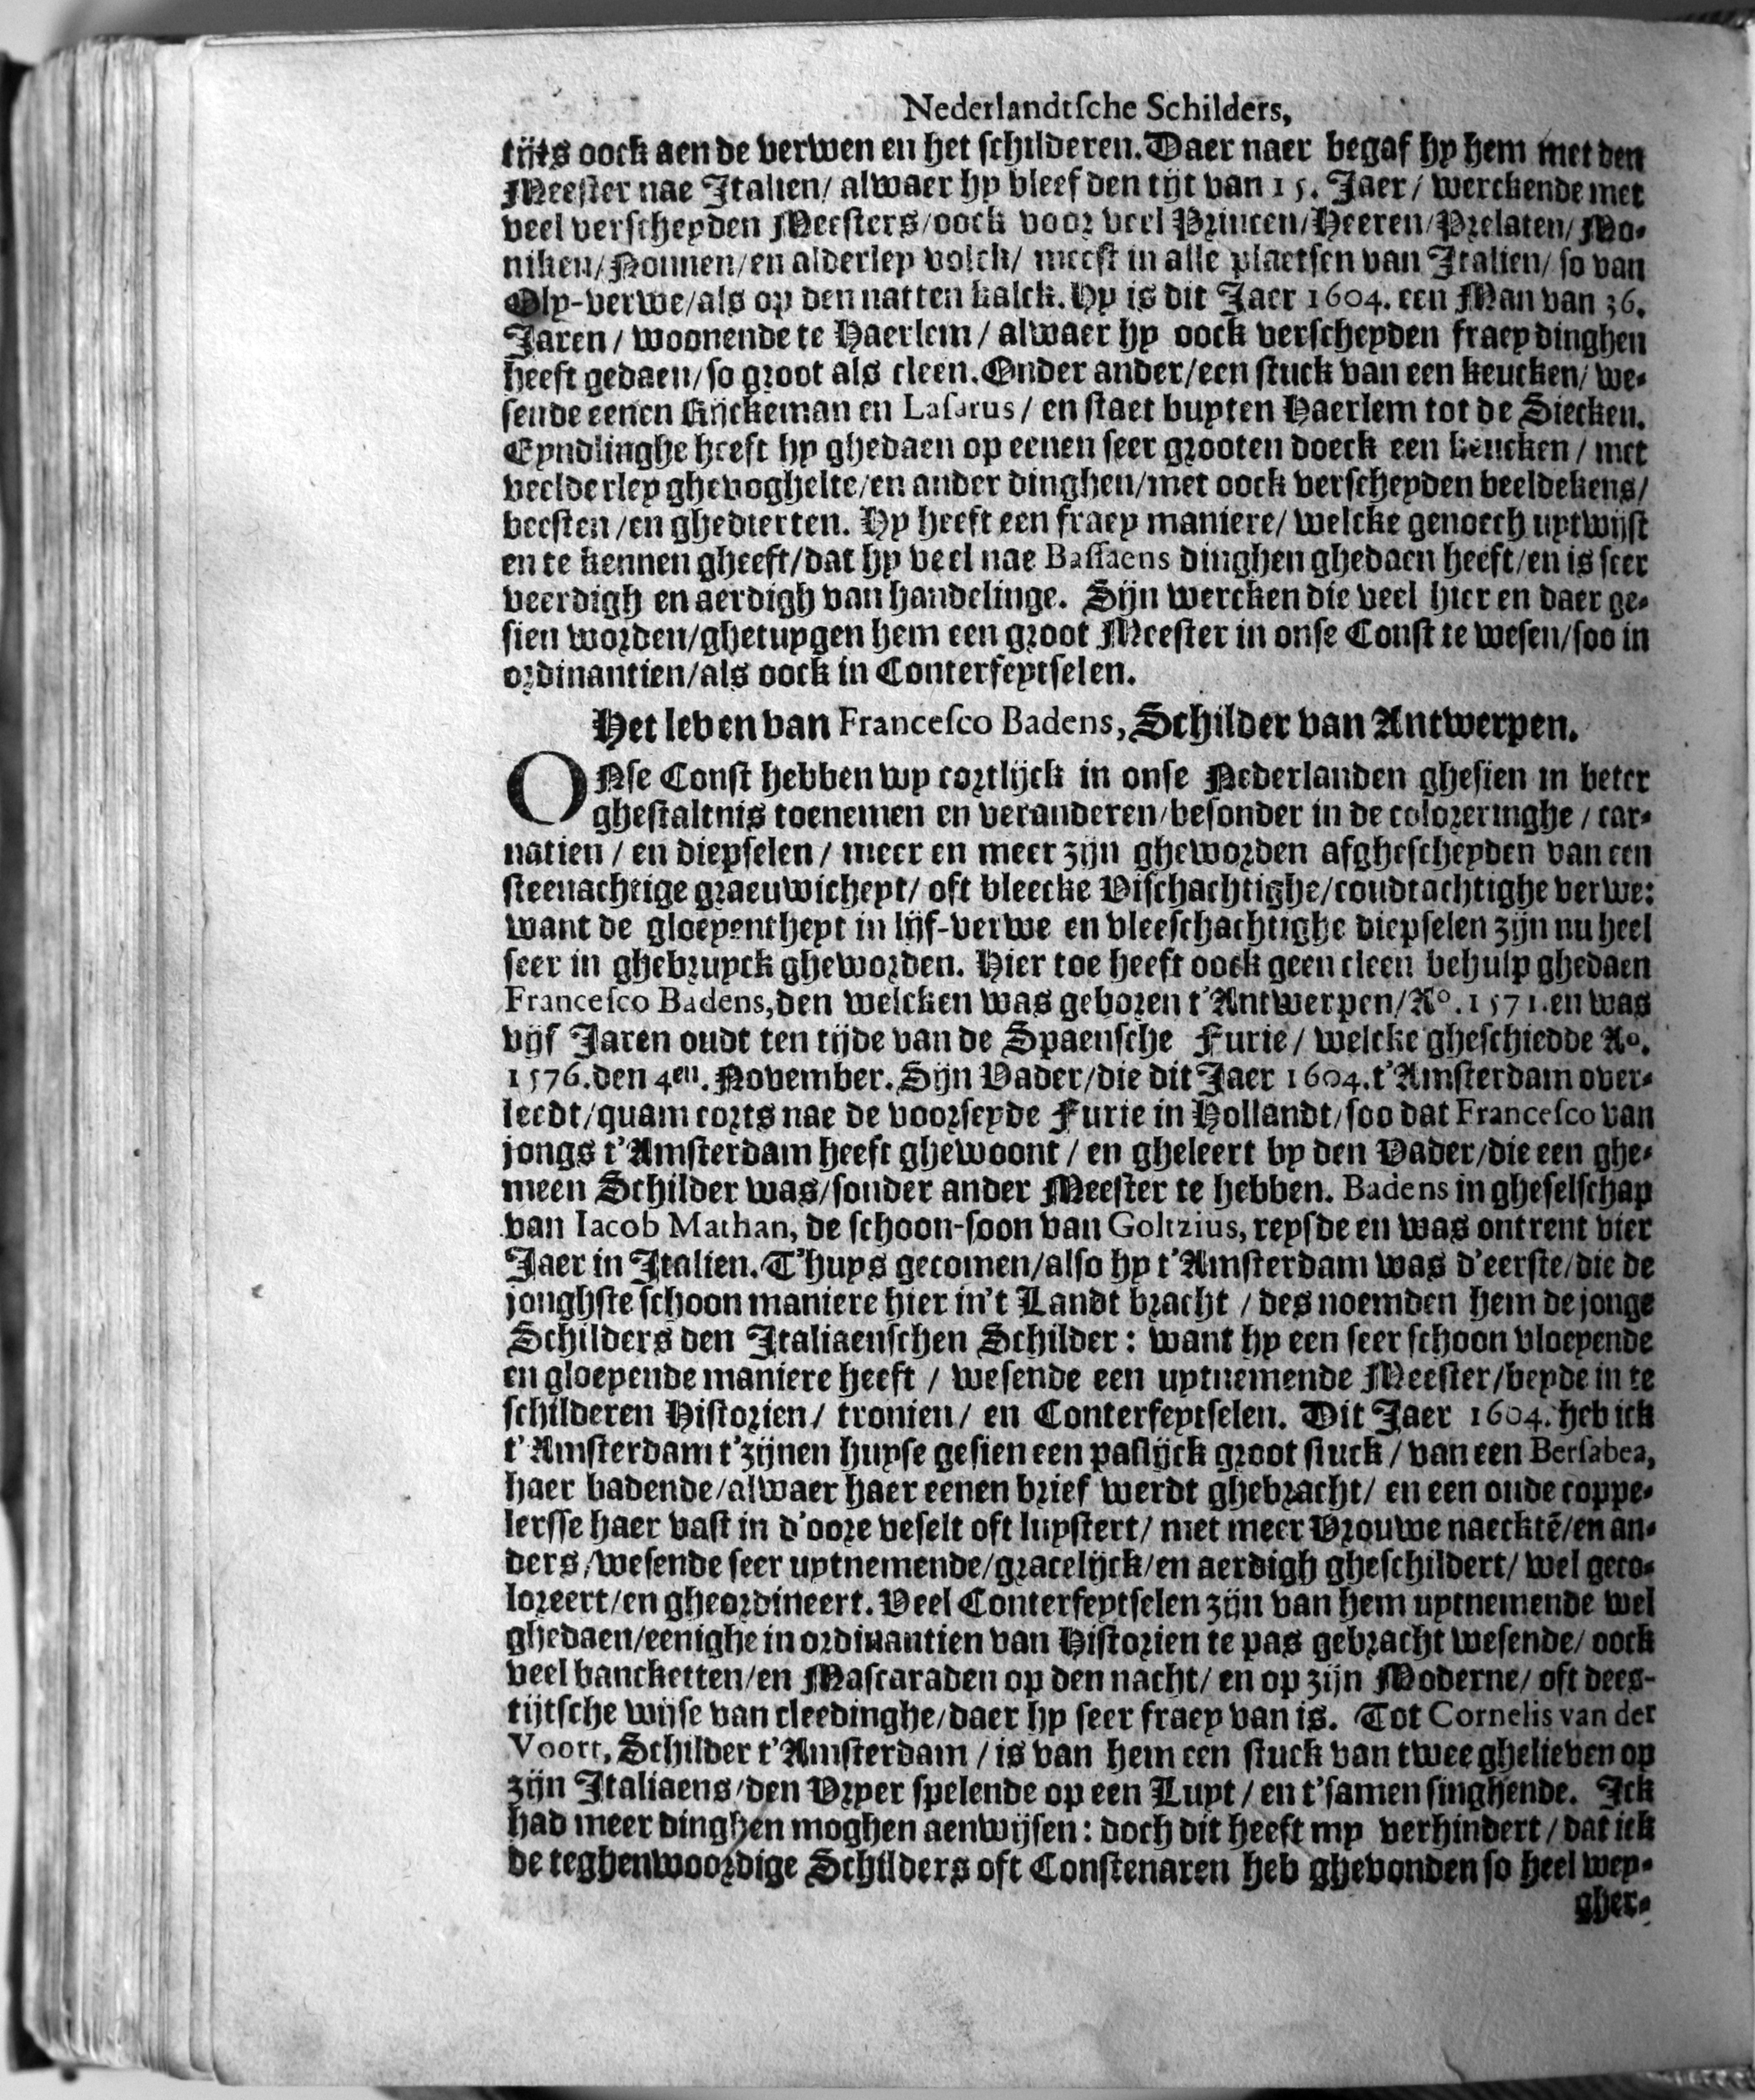 Nederlandtsche Schilders,
tijts oock aen de verwen en het schilderen. Daer naer begaf hy hem met den
Meester nae Italien/ alwaer hy bleef den tijt van 15. Jaer/ werckende met
veel verscheyden Meesters/oock voor veel Princen/Heeren/Prelaten/Mo-
niken/Nonnen/en alderley volck/ meest in alle plaetsen van Italien/ so van
Oly-verwe/als op den natten kalck. Hy is dit Jaer 1604. een Man van 36.
Jaren/ woonende te Haerlem/ alwaer hy oock verscheyden fraey dinghen
heeft gedaen/so groot als cleen. Onder ander/een stuck van een keucken/ we-
sende eenen Rijckeman en Lasarus/ en staet buyten Haerlem tot de Siecken.
Eyndlinghe heeft hy ghedaen op eenen seer grooten doeck een keucken/ met
veelderley ghevoghelte/en ander dinghen/met oock verscheyden beeldekens/
beesten/en ghedierten. Hy heeft een fraey maniere/ welcke genoech uytwijst
en te kennen gheeft/dat hy veel nae Bassaens dinghen ghedaen heeft/en is seer
veerdigh en aerdigh van handelinge. Sijn wercken die veel hier en daer ge-
sien worden/ghetuygen hem een groot Meester in onse Const te wesen/soo in
ordinantien/als oock in Conterfeytselen.
Het leven van Francesco Badens, Schilder van Antwerpen.
ONse Const hebben wy cortlijck in onse Nederlanden ghesien in beter
ghestaltnis toenemen en veranderen/besonder in de coloreringhe/ car-
natien/ en diepselen/ meer en meer zijn gheworden afghescheyden van een
steenachtige graeuwicheyt/ oft bleecke Vischachtighe/coudtachtighe verwe:
want de gloeyentheyt in lijf-verwe en vleeschachtighe diepselen zijn nu heel
seer in ghebruyck gheworden. Hier toe heeft oock geen cleen behulp ghedaen
Francesco Badens, den welcken was geboren t'Antwerpen/Aº. 1571. en was
vijf Jaren oudt ten tijde van de Spaensche Furie/ welcke gheschiedde Aº.
1576. den 4en. November. Sijn Vader/die dit Jaer 1604. t'Amsterdam over-
leedt/quam corts nae de voorseyde Furie in Hollandt/soo dat Francesco van
jongs t'Amsterdam heeft ghewoont/ en gheleert by den Vader/die een ghe-
meen Schilder was/sonder ander Meester te hebben. Badens in gheselschap
van Iacob Mathan, de schoon-soon van Goltzius, reysde en was ontrent vier
Jaer in Italien. T'huys gecomen/also hy t'Amsterdam was d'eerste/die de
jonghste schoon maniere hier in't Landt bracht/ des noemden hem de jonge
Schilders den Italiaenschen Schilder: want hy een seer schoon vloeyende
en gloeyende maniere heeft/ wesende een uytnemende Meester/beyde in te
schilderen Historien/ tronien/ en Conterfeytselen. Dit Jaer 1604. heb ick
t'Amsterdam t'zijnen huyse gesien een paslijck groot stuck/ van een Bersabea,
haer badende/alwaer haer eenen brief werdt ghebracht/ en een oude coppe-
lersse haer vast in d'oore veselt oft luystert/ met meer Vrouwe naecktẽ/en an-
ders/wesende seer uytnemende/gracelijck/en aerdigh gheschildert/ wel geco-
loreert/en gheordineert. Veel Conterfeytselen zijn van hem uytnemende wel
ghedaen/eenighe in ordinantien van Historien te pas gebracht wesende/ oock
veel bancketten/en Mascaraden op den nacht/ en op zijn Moderne/ oft dees-
tijtsche wijse van cleedinghe/daer hy seer fraey van is. Tot Cornelis van der
Voort, Schilder t'Amsterdam/ is van hem een stuck van twee ghelieven op
zijn Italiaens/den Vryer spelende op een Luyt/ en t'samen singhende. Ick
had meer dinghen moghen aenwijsen: doch dit heeft my verhindert/ dat ick
de teghenwoordige Schilders oft Constenaren heb ghevonden so heel wey-
gher-